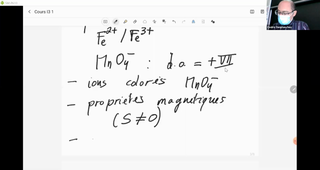 Cours I3 1
Fe2+/Fe3+
MnO4- : d.o. = +VII
- ions colorés MnO4-
- propriétés magnétiques
(S ≠ 0)
-